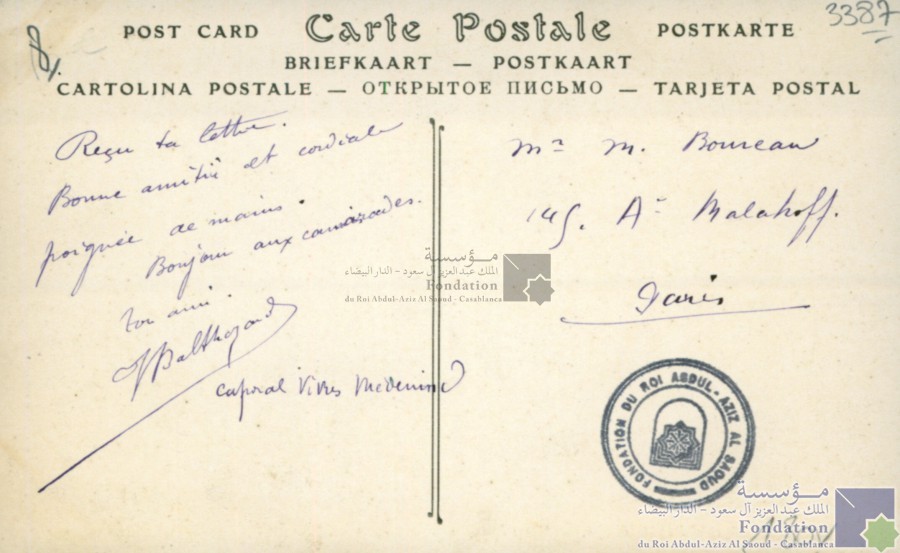 3387
8.
POST CARD Carte Postale POSTKARTE
BRIEFKAART — POSTKAART
CARTOLINA POSTALE — ОТКРЫТОЕ ПИСЬМО — TARJETA POSTAL
Reçu ta lettre.
Bonne amitié et cordiale
poignée de mains.
Bonjour aux camarades.
ton ami.
Balthazard
caporal Vivres
Mr M. Boureau
145, Ae Malakoff.
Paris
مؤسسة
الملك عبد العزيز آل سعود - الدار البيضاء
Fondation
du Roi Abdul-Aziz Al Saoud - Casablanca
FONDATION DU ROI ABDUL-AZIZ AL SAOUD
مؤسسة
الملك عبد العزيز آل سعود - الدار البيضاء
Fondation
du Roi Abdul-Aziz Al Saoud - Casablanca